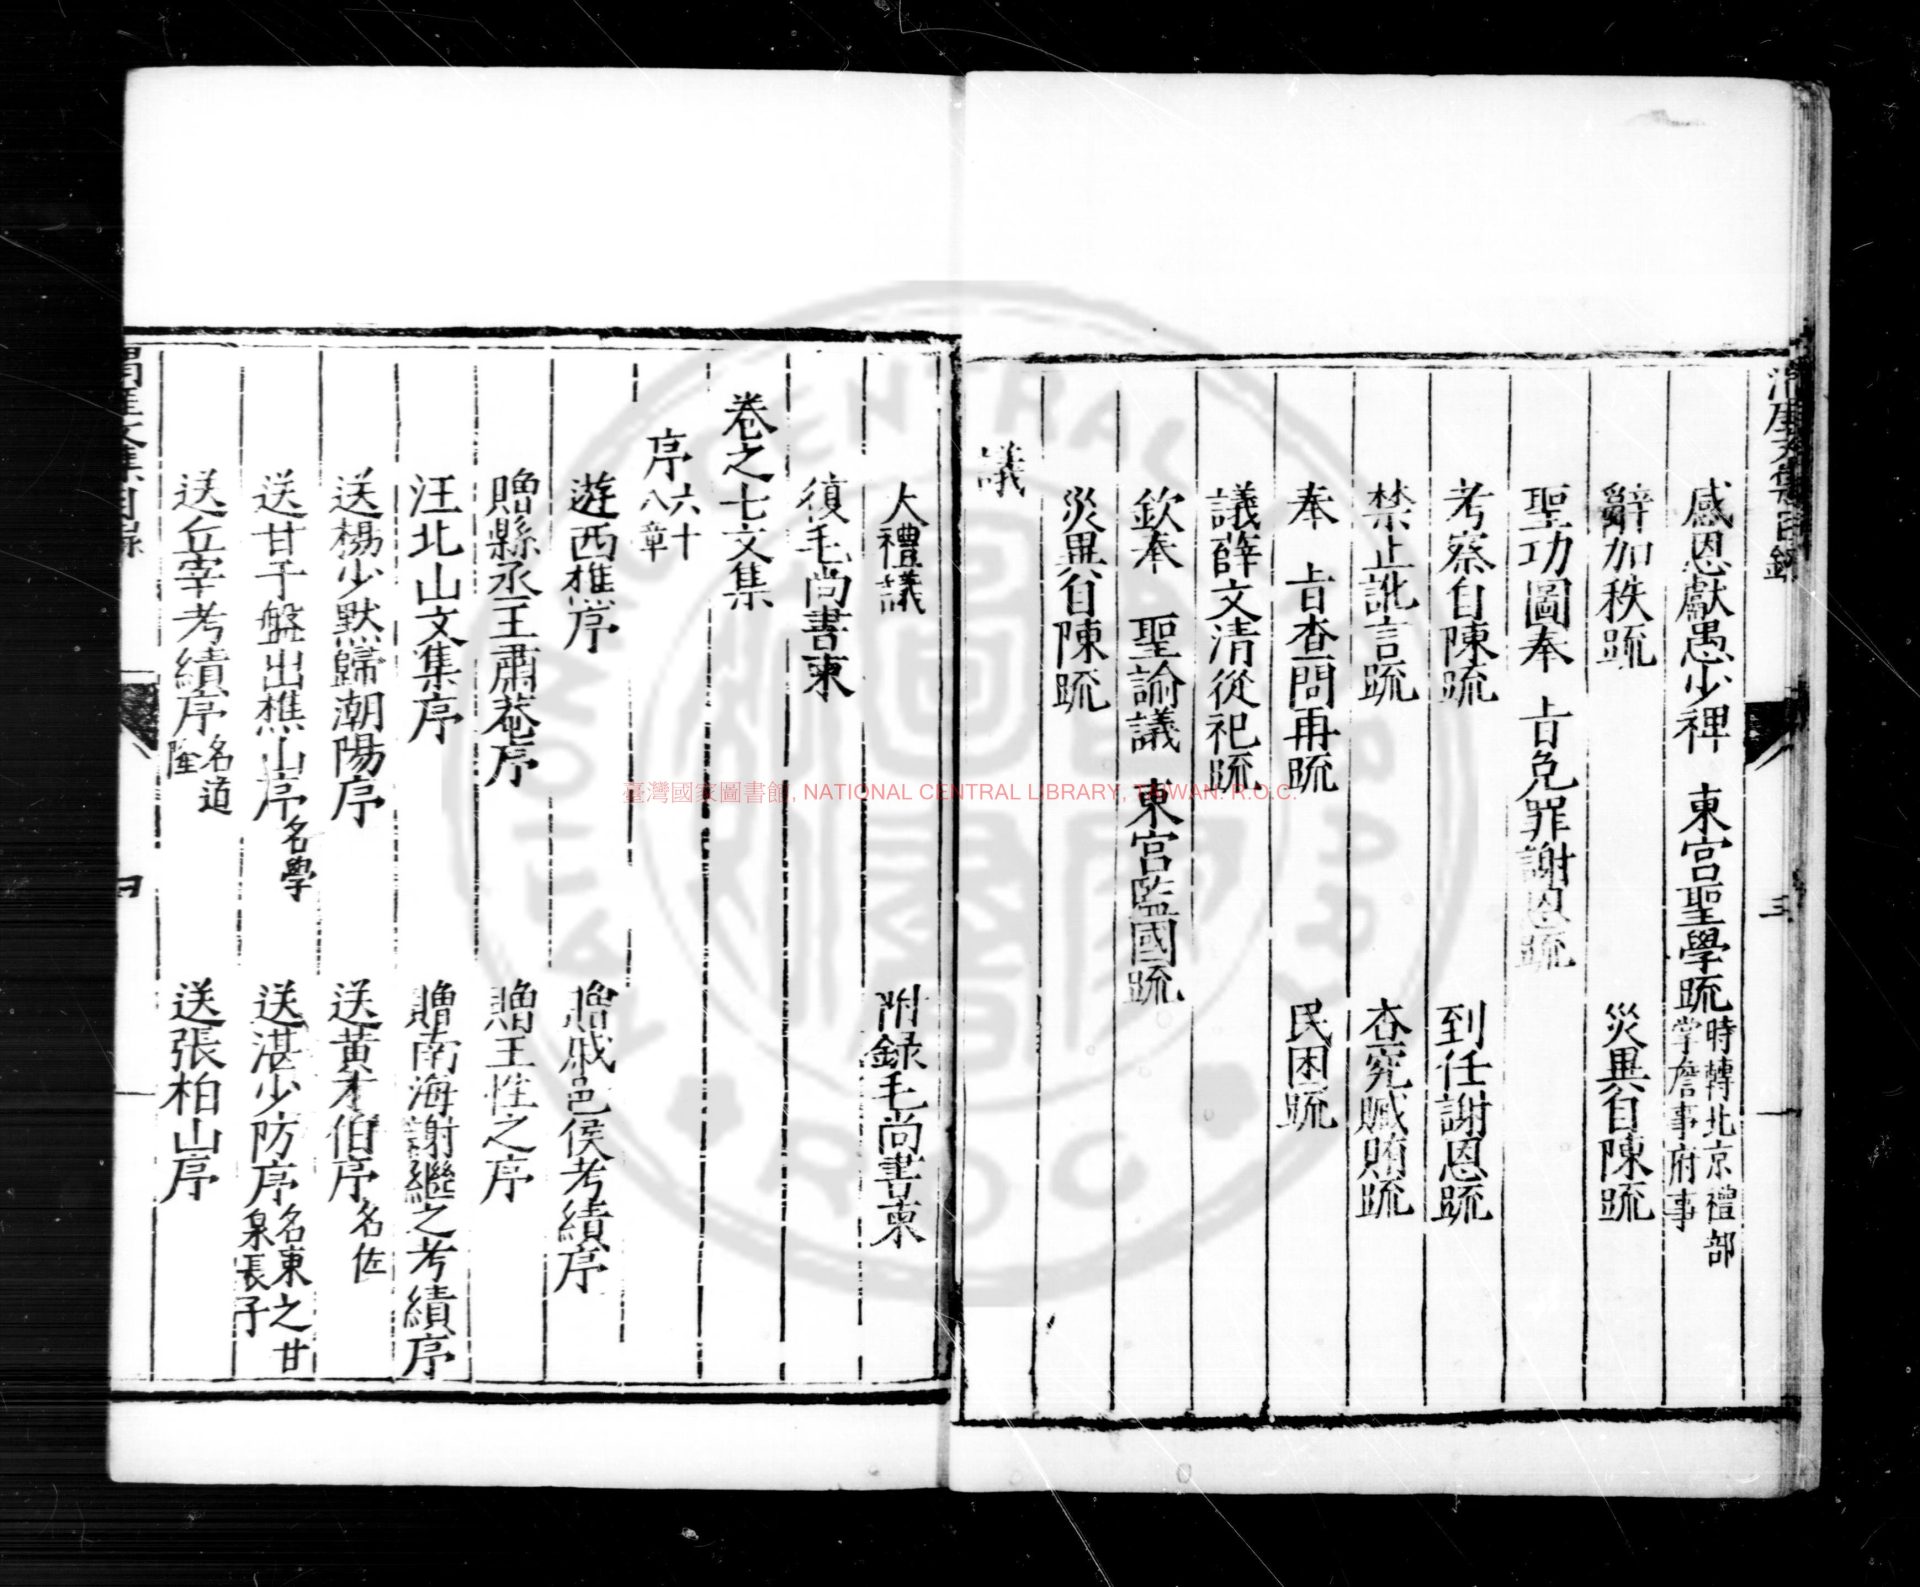 感恩獻愚少裨　東宮聖學疏時轉北京禮部掌詹事府事
辭加秩疏　災異自陳疏
聖功圖奉　旨免罪謝恩疏
考察自陳疏　到任謝恩疏
禁止訛言疏　查究贓賄疏
奉　旨查問再疏　民困疏
議薛文清從祀疏
欽奉　聖諭議　東宮監國疏
災異自陳疏
議
大禮議　附録毛尚書柬
復毛尚書柬
卷之七文集
序六十八章
遊西樵序　贈戚邑侯考績序
贈縣丞王肅菴序　贈王性之序
汪北山文集序　贈南海謝繼之考績序
送楊少默歸潮陽序　送黃才伯序名佐
送甘于盤出樵山序名學　送湛少防序名東之甘泉長子
送丘宰考績序名道隆　送張柏山序
臺灣國家圖書館, NATIONAL CENTRAL LIBRARY, TAIWAN. R.O.C.